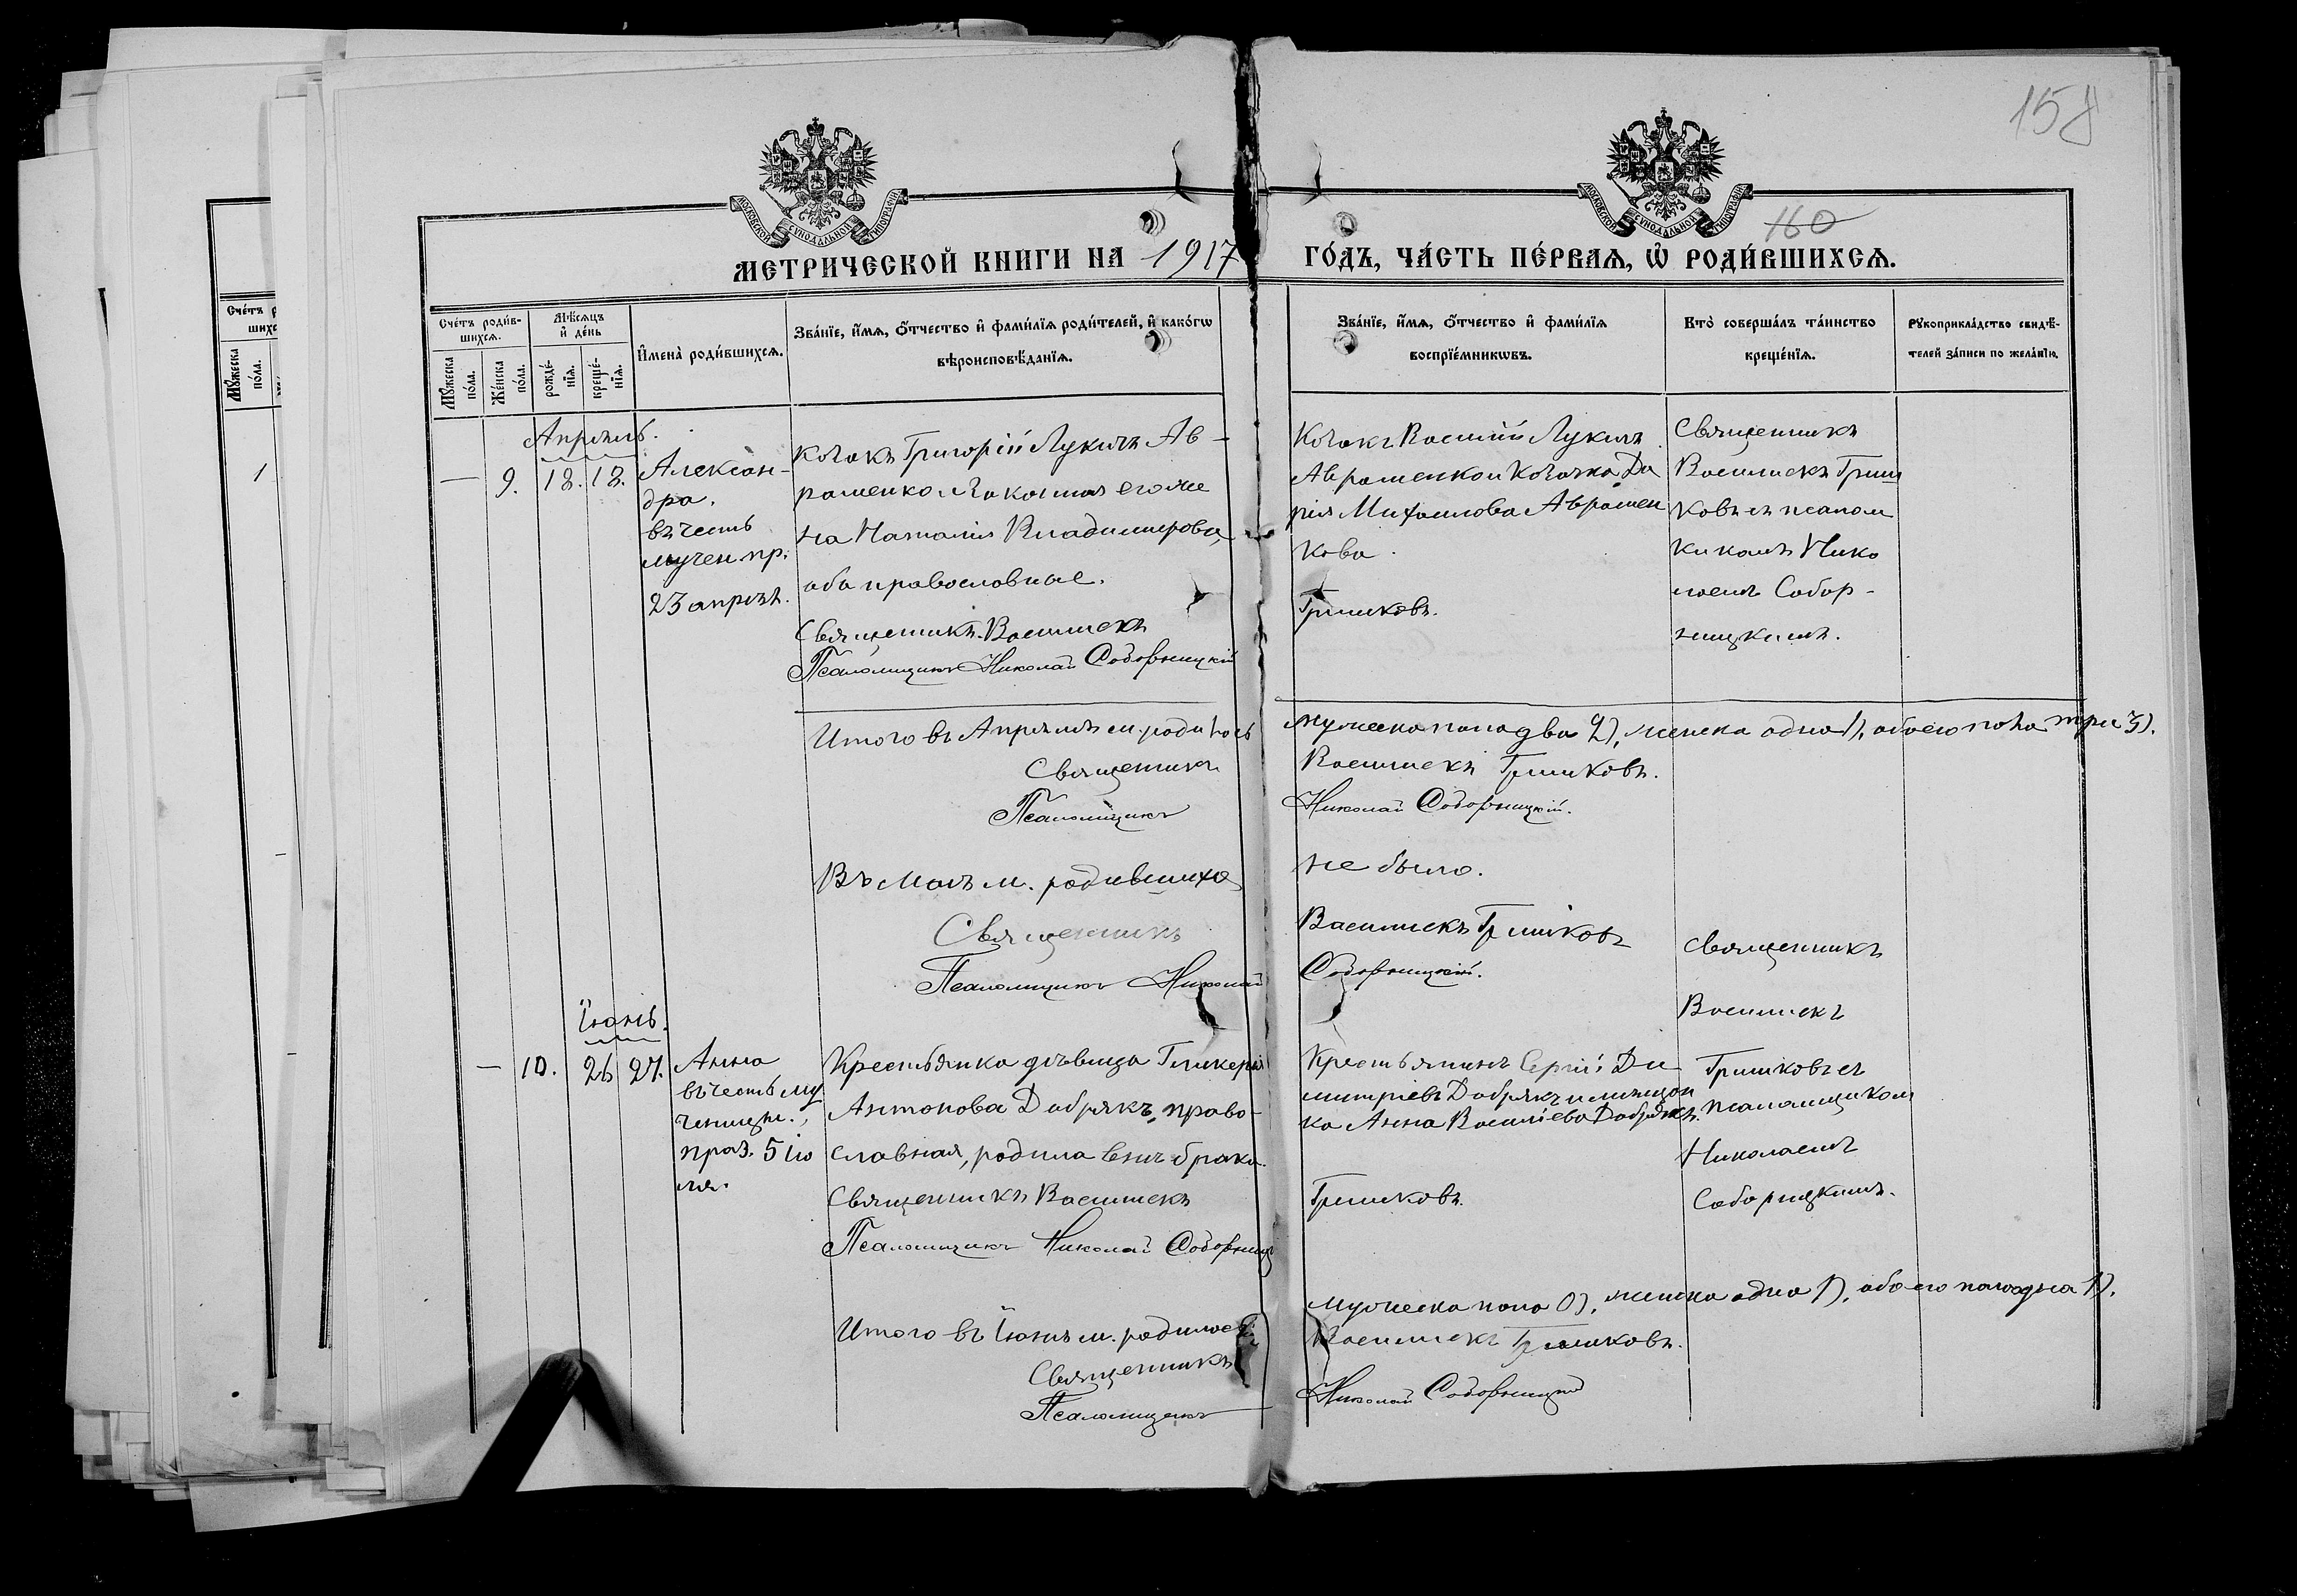 158
160
МОСКОВСКОЙ СѴНОДАЛЬНОЙ ТИПОГРАФІИ
МОСКОВСКОЙ СѴНОДАЛЬНОЙ ТИПОГРАФІИ
МЕТРИЧЕСКОЙ КНИГИ НА 1917 ГО́ДЪ, ЧА́СТЬ ПЕ́РВАѦ, Ѡ҆ РОДИ́ВШИХСѦ.
Сче́тъ роди́в-
шихсѧ.
Мꙋ́жеска
по́ла.
Же́нска
по́ла.
Мѣ́сѧцъ
и҆ де́нь
рожде́-
нїѧ.
креще́-
нїѧ.
И҆мена̀ роди́вшихсѧ.
Зва́нїе, и҆́мѧ, ѻ҆́тчество и҆ фами́лїѧ роди́телей, и҆ како́гѡ
вѣроисповѣ́данїѧ.
Зва́нїе, и҆́мѧ, ѻ҆́тчество и҆ фами́лїѧ
воспрїе́мникѡвъ.
Кто̀ соверша́лъ та́инство
креще́нїѧ.
Рꙋкоприкла́дство свидѣ́-
телей за́писи по жела́нїю.
Сче́тъ
Мꙋ́жеска
по́ла.
1
Апрѣль.
— 9. 18. 18.
Алексан-
дра.
въ честь
мучен. пр.
23 апрѣл.
Козакъ Григорій Лукичъ Ав-
раменко и законная его же
на Наталія Владимирова,
оба православные.
Священникъ Василискъ
Псаломщикъ Николай Соборницкій
Козакъ Василій Лукичъ
Авраменко и козачка Да
рія Михаилова Аврамен
кова.
Гришковъ.
Священникъ
Василискъ Гриш
ковъ съ псалом
щикомъ Нико
лаемъ Собор-
ницкимъ.
Итого въ Апрѣлѣ м. родилось мужеска пола два 2), женска одна 1), обоего пола три 3).
Священникъ Василискъ Гришковъ.
Псаломщикъ Николай Соборницкій.
Въ Маѣ м. родившихся не было.
Священникъ Василискъ Гришковъ
Псаломщикъ Николай Соборницкій.
Іюнь.
— 10. 26 27.
Анна
въ честь му
ченицы.,
праз. 5 ію
ля.
Крестьянка дѣвица Гликерія
Антонова Добрякъ, право-
славная, родила внѣ брака.
Священникъ Василискъ
Псаломщикъ Николай Соборниц
Крестьянинъ Сергій Ди
митріевъ Добрякъ и мѣщан
ка Анна Василіева Добрякъ.
Гришковъ.
Священникъ
Василискъ
Гришковъ съ
псаломщиком
Николаемъ
Соборницкимъ.
Итого въ Іюнѣ м. родилось мужеска пола 0), женска одна 1), обоего пола одна 1).
Священникъ Василискъ Гришковъ.
Псаломщикъ Николай Соборницкій